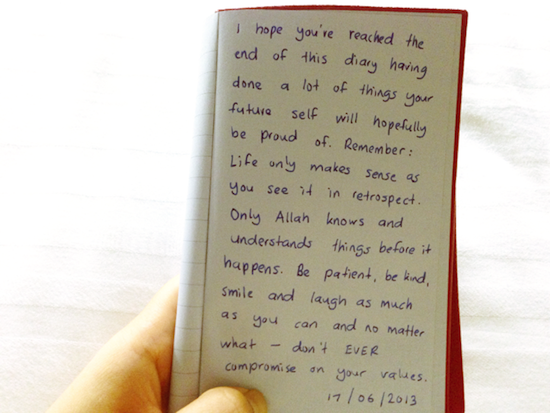 I hope you've reached the
end of this diary having
done a lot of things your
future self will hopefully
be proud of. Remember:
Life only makes sense as
you see it in retrospect.
Only Allah knows and
understands things before it
happens. Be patient, be kind,
smile and laugh as much
as you can and no matter
what – don't EVER
compromise on your values.
17/06/2013